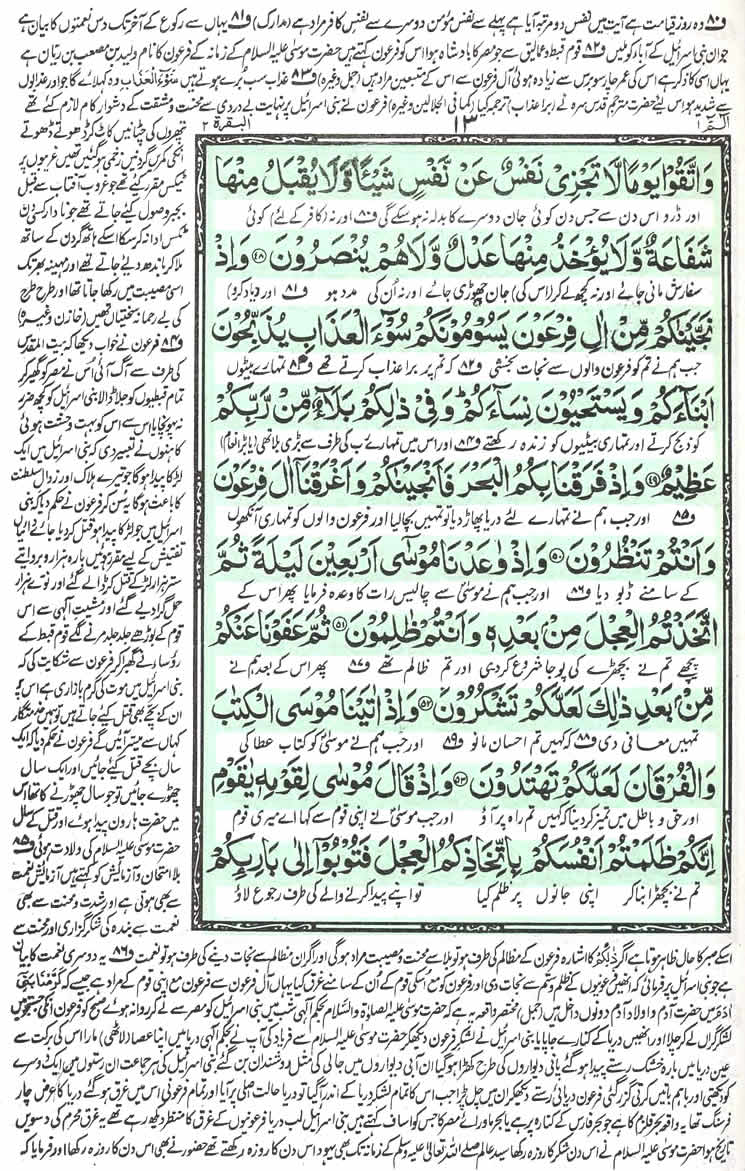 ف۸۰ وہ روز قیامت ہے آیت میں نفس دو مرتبہ آیا ہے پہلے سے نفس مؤمن دوسرے سے نفس کافر مراد ہے (مدارک) ف۸۱ یہاں سے رکوع کے آخر تک دس نعمتوں کا بیان ہے
جوان بنی اسرائیل کے آباء کو ملیں ف۸۲ قوم قبط و عمالیق سے جو مصر کا بادشاہ ہوا اس کو فرعون کہتے ہیں حضرت موسیٰ علیہ السلام کے زمانہ کے فرعون کا نام ولید بن مصعب بن ریان ہے
یہاں اسی کا ذکر ہے اس کی عمر چار سو برس سے زیادہ ہوئی آل فرعون سے اس کے متبعین مراد ہیں (جمل وغیرہ) ف۸۳ عذاب سب بُرے ہوتے ہیں سُوْٓءَ الْعَذَابِ وہ کہلائے گا جو اور عذابوں
سے شدید ہو اس لئے حضرت مترجم قدس سرہ نے (برا عذاب) ترجمہ کیا (کما فی الجلالین وغیرہ) فرعون نے بنی اسرائیل پر نہایت بے دردی سے محنت و مشقت کے دشوار کام لازم کئے تھے
الٓمّٓ ۱
۱۳
البقرة ۲
وَاتَّقُوْا یَوْمًا لَّا تَجْزِیْ نَفْسٌ عَنْ نَّفْسٍ شَیْئًا وَّلَا یُقْبَلُ مِنْهَا
اور ڈرو اس دن سے جس دن کوئی جان دوسرے کا بدلہ نہ ہوسکے گی ف۸۰ اور نہ (کافر کے لئے) کوئی
شَفَاعَةٌ وَّلَا یُؤْخَذُ مِنْهَا عَدْلٌ وَّلَا هُمْ یُنْصَرُوْنَ ﴿۴۸﴾ وَاِذْ
سفارش مانی جائے اور نہ کچھ لے کر (اس کی) جان چھوڑی جائے اور نہ اُن کی مدد ہو ف۸۱ اور (یاد کرو)
نَجَّیْنٰكُمْ مِّنْ اٰلِ فِرْعَوْنَ یَسُوْمُوْنَكُمْ سُوْٓءَ الْعَذَابِ یُذَبِّحُوْنَ
جب ہم نے تم کو فرعون والوں سے نجات بخشی ف۸۲ کہ تم پر برا عذاب کرتے تھے ف۸۳ تمہارے بیٹوں
اَبْنَآءَكُمْ وَیَسْتَحْیُوْنَ نِسَآءَكُمْ وَفِیْ ذٰلِكُمْ بَلَآءٌ مِّنْ رَّبِّكُمْ
کو ذبح کرتے اور تمہاری بیٹیوں کو زندہ رکھتے ف۸۴ اور اس میں تمہارے رب کی طرف سے بڑی بلا تھی (یا بڑا انعام)
عَظِیْمٌ ﴿۴۹﴾ وَاِذْ فَرَقْنَا بِكُمُ الْبَحْرَ فَاَنْجَیْنٰكُمْ وَاَغْرَقْنَاۤ اٰلَ فِرْعَوْنَ
ف۸۵ اور جب ہم نے تمہارے لئے دریا پھاڑ دیا تو تمہیں بچالیا اور فرعون والوں کو تمہاری آنکھوں
وَاَنْتُمْ تَنْظُرُوْنَ ﴿۵۰﴾ وَاِذْ وٰعَدْنَا مُوْسٰۤی اَرْبَعِیْنَ لَیْلَةً ثُمَّ
کے سامنے ڈبو دیا ف۸۶ اور جب ہم نے موسیٰ سے چالیس رات کا وعدہ فرمایا پھر اس کے
اتَّخَذْتُمُ الْعِجْلَ مِنْۢ بَعْدِهٖ وَاَنْتُمْ ظٰلِمُوْنَ ﴿۵۱﴾ ثُمَّ عَفَوْنَا عَنْكُمْ
پیچھے تم نے بچھڑے کی پوجا شروع کر دی اور تم ظالم تھے ف۸۷ پھر اس کے بعد ہم نے
مِّنْۢ بَعْدِ ذٰلِكَ لَعَلَّكُمْ تَشْكُرُوْنَ ﴿۵۲﴾ وَاِذْ اٰتَیْنَا مُوْسَی الْكِتٰبَ
تمہیں معافی دی ف۸۸ کہ کہیں تم احسان مانو ف۸۹ اور جب ہم نے موسیٰ کو کتاب عطا کی
وَالْفُرْقَانَ لَعَلَّكُمْ تَهْتَدُوْنَ ﴿۵۳﴾ وَاِذْ قَالَ مُوْسٰی لِقَوْمِهٖ یٰقَوْمِ
اور حق و باطل میں تمیز کر دینا کہ کہیں تم راہ پر آؤ اور جب موسیٰ نے اپنی قوم سے کہا اے میری قوم
اِنَّكُمْ ظَلَمْتُمْ اَنْفُسَكُمْ بِاتِّخَاذِكُمُ الْعِجْلَ فَتُوْبُوْۤا اِلٰی بَارِىِٕكُمْ
تم نے بچھڑا بنا کر اپنی جانوں پر ظلم کیا تو اپنے پیدا کرنے والے کی طرف رجوع لاؤ
پتھروں کی چٹانیں کاٹ کر ڈھوتے ڈھوتے
انکی کمریں گردنیں زخمی ہوگئیں تھیں غریبوں پر
ٹیکس مقرر کئے تھے جو غروب آفتاب سے قبل
بجبر وصول کیئے جاتے تھے جو نادار کسی دن
ٹیکس ادا نہ کرسکا اسکے ہاتھ گردن کے ساتھ
ملا کر باندھ دیئے جاتے تھے اور مہینہ بھر تک
اسی مصیبت میں رکھا جاتا تھا اور طرح طرح
کی بے رحمانہ سختیاں تھیں (خازن وغیرہ)
ف۸۴ فرعون نے خواب دیکھا کہ بیت المقدس
کی طرف سے آگ آئی اُس نے مصر کو گھیر کر
تمام قبطیوں کو جلا ڈالا بنی اسرائیل کو کچھ ضرر
نہ پہونچایا اس سے اس کو بہت وحشت ہوئی
کاہنوں نے تعبیر دی کہ بنی اسرائیل میں ایک
لڑکا پیدا ہوگا جو تیرے ہلاک اور زوال سلطنت
کا باعث ہوگا یہ سن کر فرعون نے حکم دیا کہ بنی
اسرائیل میں جو لڑکا پیدا ہو قتل کر دیا جائے دائیاں
تفتیش کے لیے مقرر ہوئیں بارہ ہزار و بروایتے
ستر ہزار لڑکے قتل کر ڈالے گئے اور نوے ہزار
حمل گرا دیئے گئے اور مشیت الٰہی سے اس
قوم کے بوڑھے جلد جلد مرنے لگے قوم قبط کے
رؤسا نے گھبرا کر فرعون سے شکایت کی کہ
بنی اسرائیل میں موت کی گرم بازاری ہے اس پر
ان کے بچے بھی قتل کیے جاتے ہیں تو ہمیں خدمتگار
کہاں سے میسر آئیں گے فرعون نے حکم دیا کہ ایک
سال بچے قتل کیے جائیں اور ایک سال
چھوڑے جائیں تو جو سال چھوڑنے کا تھا اس
میں حضرت ہارون پیدا ہوئے اور قتل کے سال
میں حضرت موسیٰ علیہ السلام کی ولادت ہوئی ف۸۵
بلا امتحان و آزمائش کو کہتے ہیں آزمائش نعمت
سے بھی ہوتی ہے اور شدت و محنت سے بھی
نعمت سے بندہ کی شکر گزاری اور محنت سے
اسکے صبر کا حال ظاہر ہوتا ہے اگر ذٰلِكُمْ کا اشارہ فرعون کے مظالم کی طرف ہو تو بلا سے محنت و مصیبت مراد ہوگی اور اگر ان مظالم سے نجات دینے کی طرف ہو تو نعمت ف۸۶ یہ دوسری نعمت کا بیان
ہے جو بنی اسرائیل پر فرمائی کہ انھیں فرعونیوں کے ظلم و ستم سے نجات دی اور فرعون کو مع اسکی قوم کے اُن کے سامنے غرق کیا یہاں آل فرعون سے فرعون مع اپنی قوم کے مراد ہے جیسے کہ كَرَّمْنَا بَنِیْۤ
اٰدَمَ میں حضرت آدم و اولاد آدم دونوں داخل ہیں (جمل) مختصر واقعہ یہ ہے کہ حضرت موسیٰ علیہ الصلاۃ والسلام بحکم الٰہی شب میں بنی اسرائیل کو مصر سے لے کر روانہ ہوئے صبح کو فرعون انکی جستجو میں
لشکر گراں لے کر چلا اور انھیں دریا کے کنارے جا پایا بنی اسرائیل نے لشکر فرعون دیکھ کر حضرت موسیٰ علیہ السلام سے فریاد کی آپ نے بحکم الٰہی دریا میں اپنا عصا (لاٹھی) مارا اس کی برکت سے
عین دریا میں بارہ خشک رستے پیدا ہوگئے پانی دیواروں کی طرح کھڑا ہوگیا ان آبی دیواروں میں جالی کی مثل روشندان بن گئے بنی اسرائیل کی ہر جماعت ان رستوں میں ایک دوسرے
کو دیکھتی اور باہم باتیں کرتی گزر گئی فرعون دریائی رستے دیکھ کر ان میں چل پڑا جب اس کا تمام لشکر دریا کے اندر آگیا تو دریا حالت اصلی پر آیا اور تمام فرعونی اس میں غرق ہوگئے دریا کا عرض چار
فرسنگ تھا یہ واقعہ بحر قلزم کا ہے جو بحر فارس کے کنارہ پر ہے یا بحر ماورائے مصر کا جس کو اساف کہتے ہیں بنی اسرائیل لب دریا فرعونیوں کے غرق کا منظر دیکھ رہے تھے یہ غرق محرم کی دسویں
تاریخ ہوا حضرت موسیٰ علیہ السلام نے اس دن شکر کا روزہ رکھا سید عالم صلے اللہ تعالیٰ علیہ وسلم کے زمانہ تک بھی یہود اس دن کا روزہ رکھتے تھے حضور نے بھی اس دن کا روزہ رکھا اور فرمایا کہ